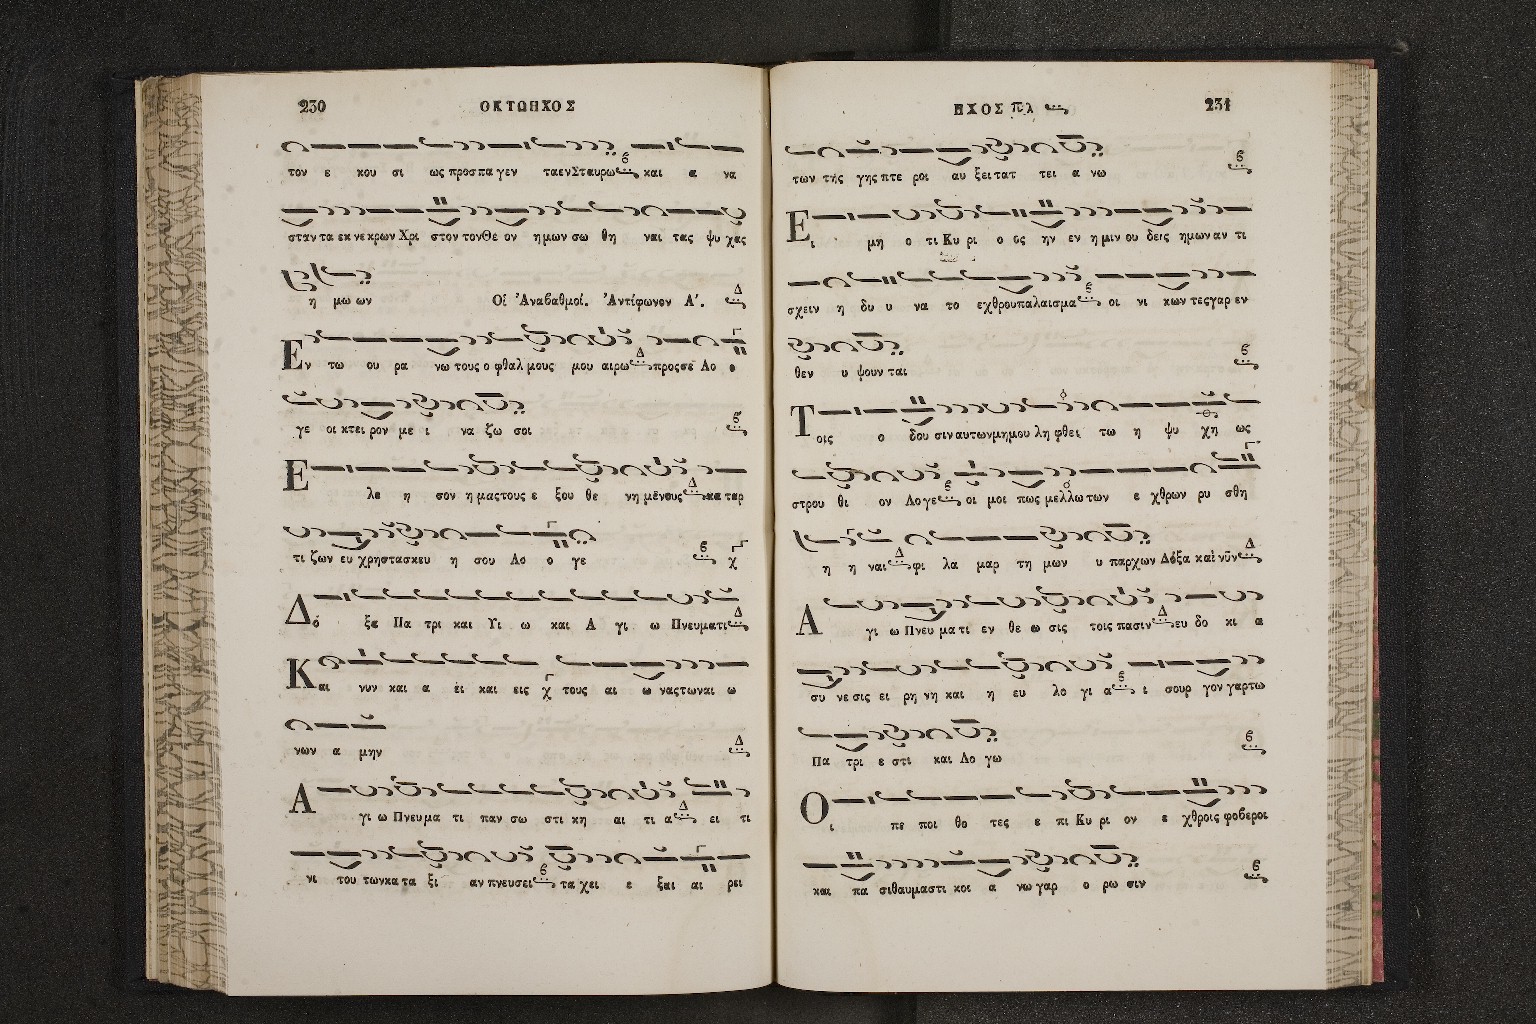 230 ΟΚΤΩΗΧΟΣ
τον ε κου σι ως προσ πα γεν ταενΣταυρω και α να
σταν τα εκ νε κρων Χρι στον τονΘε ον ημων σω θη ναι τας ψυ χας
η μω ων Οἱ Ἀναβαθμοί. Ἀντίφωνον Α΄. Δ
Εν τω ου ρα νω τους ο φθαλ μους μου αιρω Δ προςσε Λο ο
γε οι κτει ρον με ι να ζω σοι
Ε λε η σον η μαςτους ε ξου θε νη μένους Δ κα ταρ
τι ζων ευ χρηστασκευ η σου Λο ο γε χ
Δό ξα Πα τρι και Υι ω και Α γι ω Πνευματι Δ
Και νυν και α ει και εις χ τους αι ω ναςτωναι ω
νων α μην Δ
Α γι ω Πνευμα τι παν σω στι κη αι τι α Δ ει τι
νι του τωνκα τα ξι αν πνευσει τα χει ε ξαι αι ρει
ΗΧΟΣ πλ 231
των τής γης πτε ροι αυ ξει τατ τει α νω
Ει μη ο τι Κυ ρι ο ος ην εν η μιν ου δεις ημωναν τι
σχειν η δυ υ να το εχθρουπαλαισμα οι νι κων τεςγαρ εν
θεν υ ψουν ται
Τοις ο δου σιναυτωνμημου λη φθει τω η ψυ χη ως
στρου θι ον Λογε οι μοι πως μελλω των ε χθρων ρυ σθη
η η ναι Δ φι λα μαρ τη μων υ παρχων Δόξα καὶ νῦν Δ
Α γι ω Πνευ μα τι εν θε ω σις τοις πασιν Δ ευ δο κι α
συ νε σις ει ρη νη και η ευ λο γι α ι σουρ γον γαρτω
Πα τρι ε στι και Λο γω
Οι πε ποι θο τες ε πι Κυ ρι ον ε χθροις φοβεροι
και πα σιθαυμαστι κοι α νω γαρ ο ρω σιν